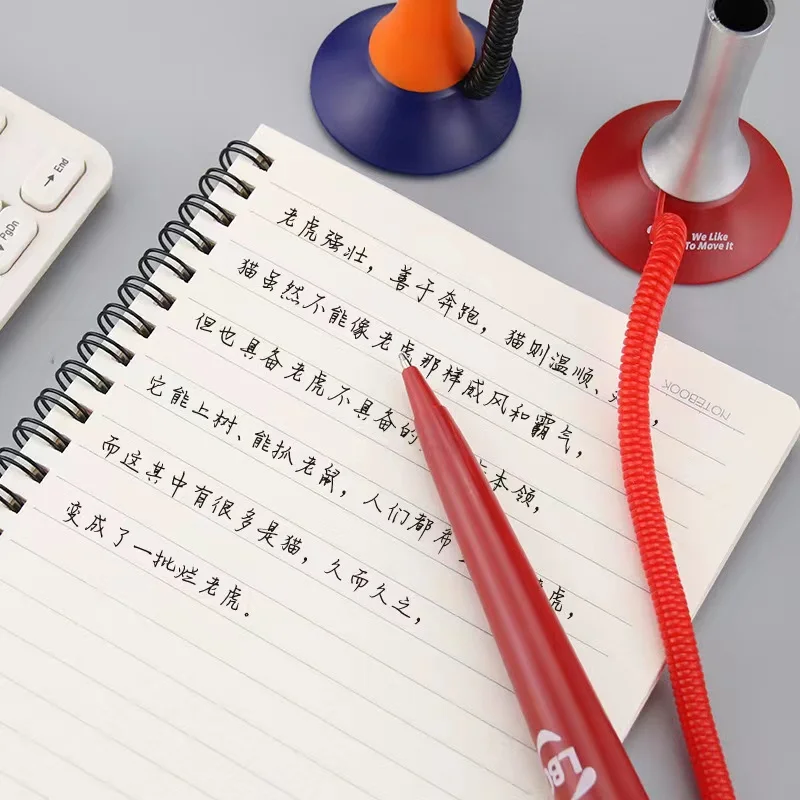 老虎强壮，善于奔跑，猫则温顺、
猫虽然不能像老虎那样威风和霸气，
但也具备老虎不具备的本领，
它能上树、能抓老鼠，人们都希虎，
而这其中有很多是猫，久而久之，
变成了一批烂老虎。
NOTEBOOK
We Like
To Move It
End
PgDn